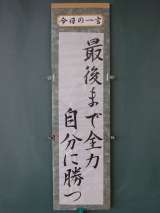 今日の一言
最後まで全力
自分に勝つ